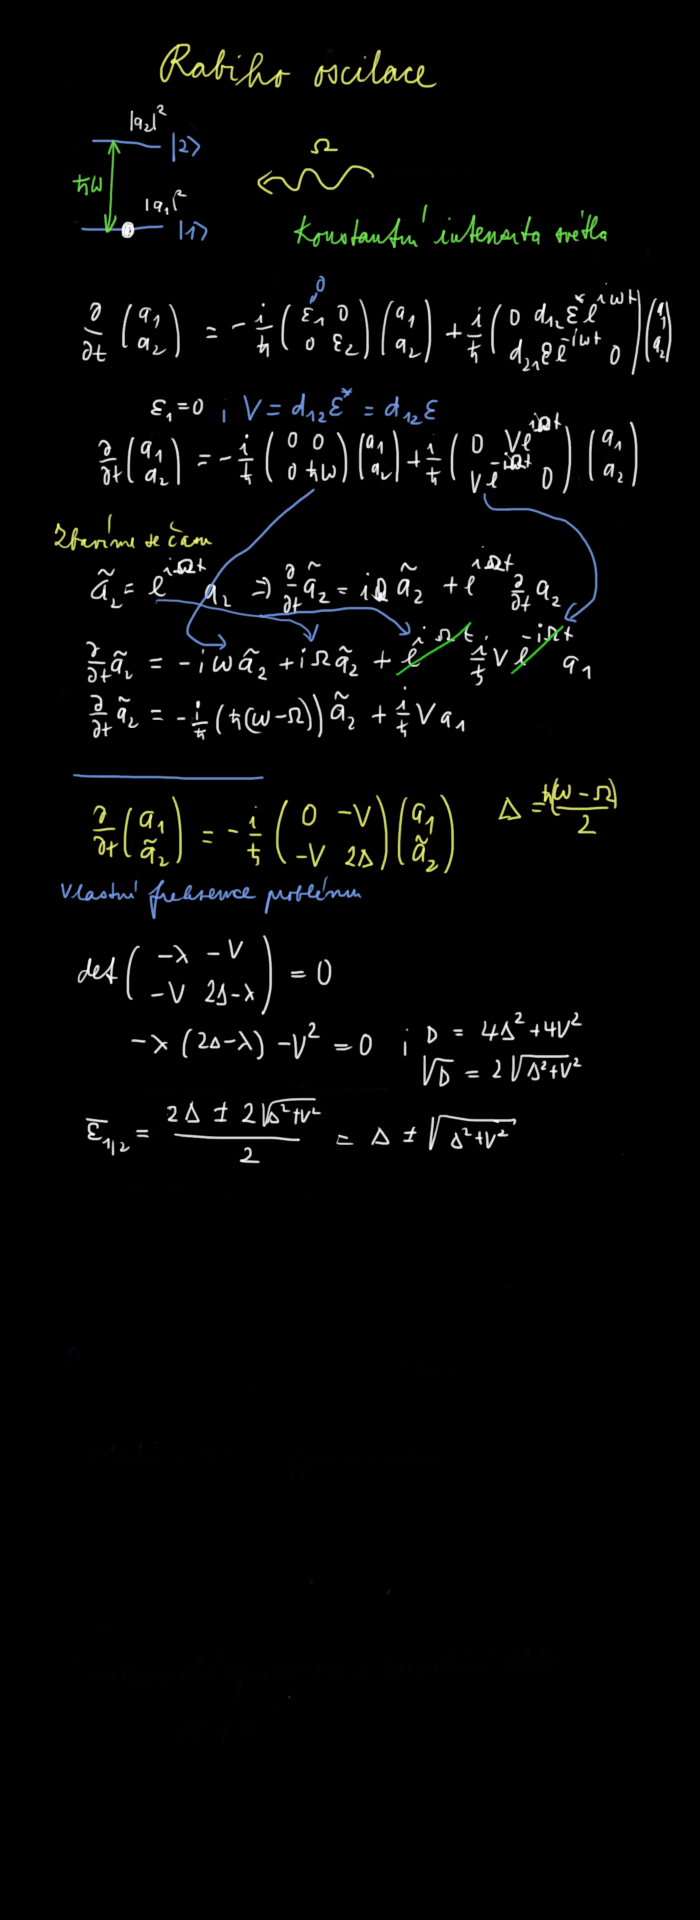 Rabiho oscilace
|a₂|²
|2⟩
ħω
Ω
|a₁|²
|1⟩
Konstantní intenzita světla
0
∂/∂t (a₁ a₂) = -i/ħ (ε₁ 0 0 ε₂) (a₁ a₂) + i/ħ (0 d₁₂ℰ*e^{iωt} d₂₁ℰe^{-iωt} 0) (a₁ a₂)
ε₁=0 ; V = d₁₂ℰ* = d₁₂ℰ
∂/∂t (a₁ a₂) = -i/ħ (0 0 0 ħω) (a₁ a₂) + i/ħ (0 Ve^{iΩt} Ve^{-iΩt} 0) (a₁ a₂)
Zbavíme se času
ã₂ = e^{iΩt} a₂ ⇒ ∂/∂t ã₂ = iΩ ã₂ + e^{iΩt} ∂/∂t a₂
∂/∂t ã₂ = -iωã₂ + iΩã₂ + e^{iΩt} i/ħ V e^{-iΩt} a₁
∂/∂t ã₂ = -i/ħ (ħ(ω-Ω)) ã₂ + i/ħ V a₁
∂/∂t (a₁ ã₂) = -i/ħ (0 -V -V 2Δ) (a₁ ã₂) Δ = ħ(ω-Ω)/2
Vlastní frekvence problému
det (-λ -V -V 2Δ-λ) = 0
-λ(2Δ-λ) - V² = 0 ; D = 4Δ²+4V²
√D = 2√(Δ²+V²)
ε̄₁/₂ = (2Δ ± 2√(Δ²+V²))/2 = Δ ± √(Δ²+V²)